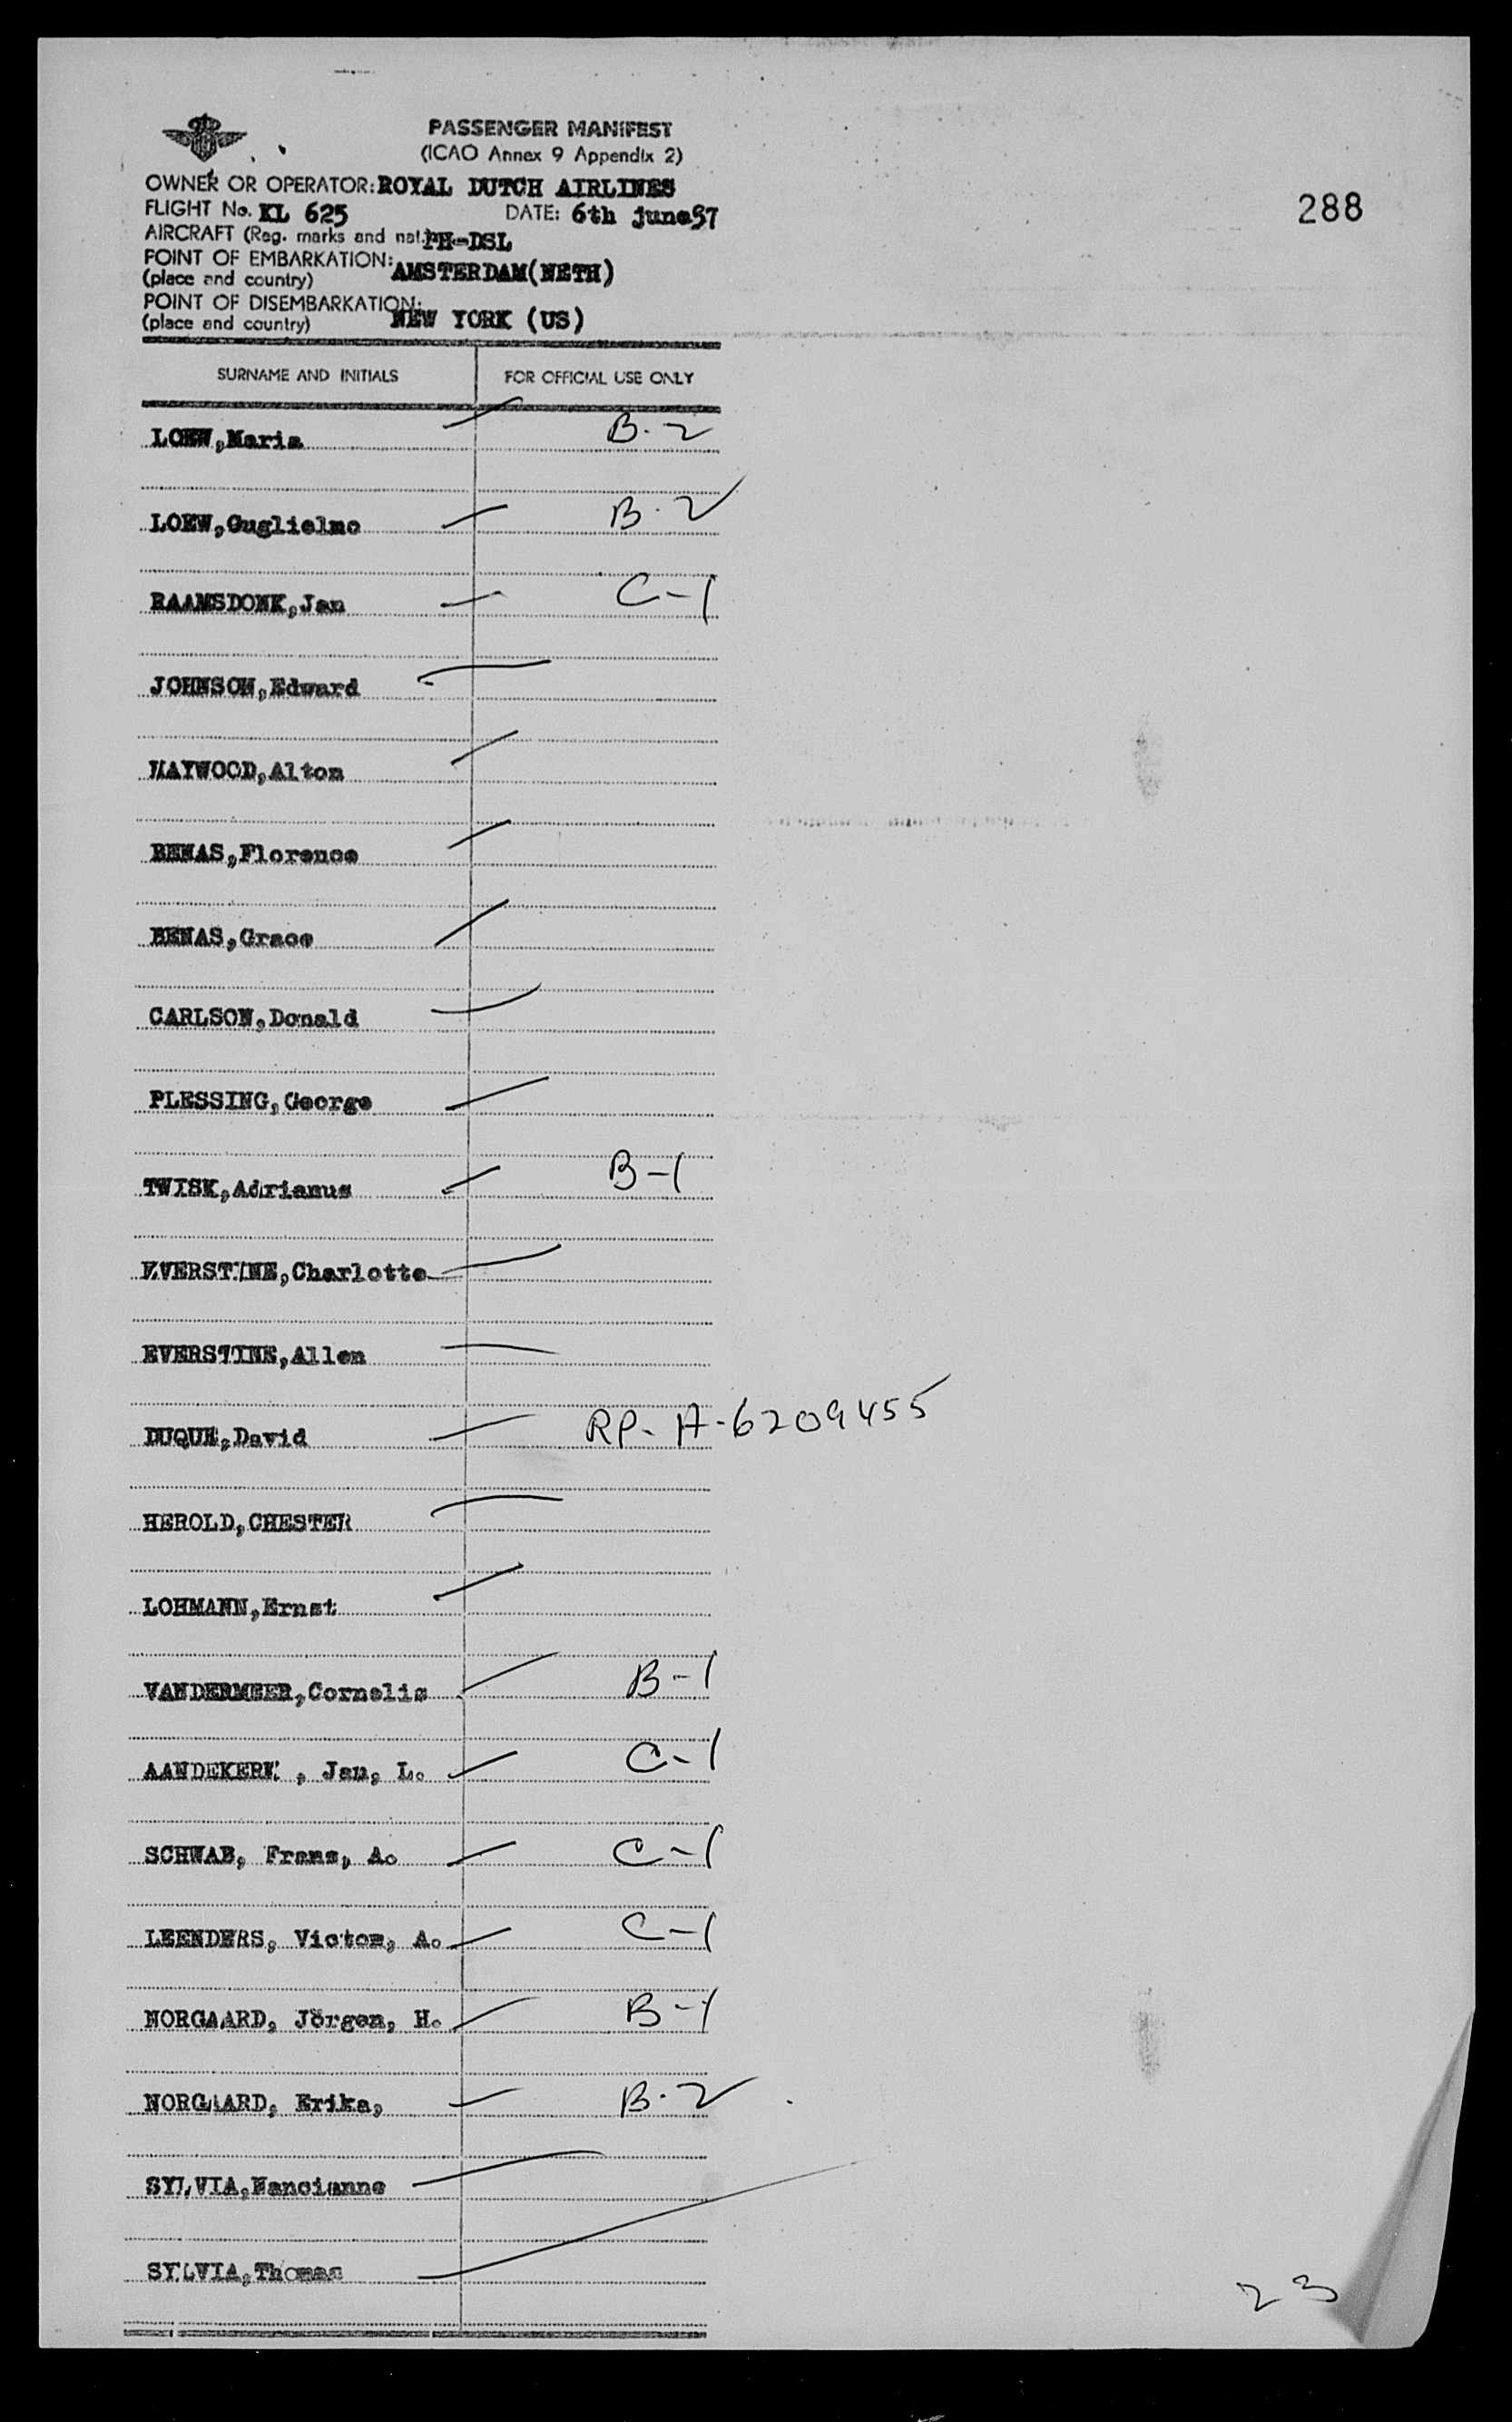 PASSENGER MANIFEST
(ICAO Annex 9 Appendix 2)
OWNER OR OPERATOR: ROYAL DUTCH AIRLINES
FLIGHT No. KL 625 DATE: 6th june57
AIRCRAFT (Reg. marks and nat.) PH-DSL
POINT OF EMBARKATION: AMSTERDAM(NETH)
(place and country)
POINT OF DISEMBARKATION: NEW YORK (US)
(place and country)
288
SURNAME AND INITIALS FOR OFFICIAL USE ONLY
LOEW,Maria B-2
LOEW,Guglielmo B-2
RAAMSDONK,Jan C-1
JOHNSON,Edward
HAYWOOD,Alton
BENAS,Florence
BENAS,Grace
CARLSON,Donald
PLESSING,George
TWISK,Adrianus B-1
EVERSTINE,Charlotte
EVERSTINE,Allen
DUQUE,David RP-A-6209455
HEROLD,CHESTER
LOHMANN,Ernst
VANDERMEER,Cornelis B-1
AANDEKERK , Jan, L. C-1
SCHWAB, Frans, A. C-1
LEENDERS, Victor, A. C-1
NORGAARD, Jörgen, H. B-1
NORGAARD, Erika, B-2
SYLVIA,Nancianne
SYLVIA,Thomas
23